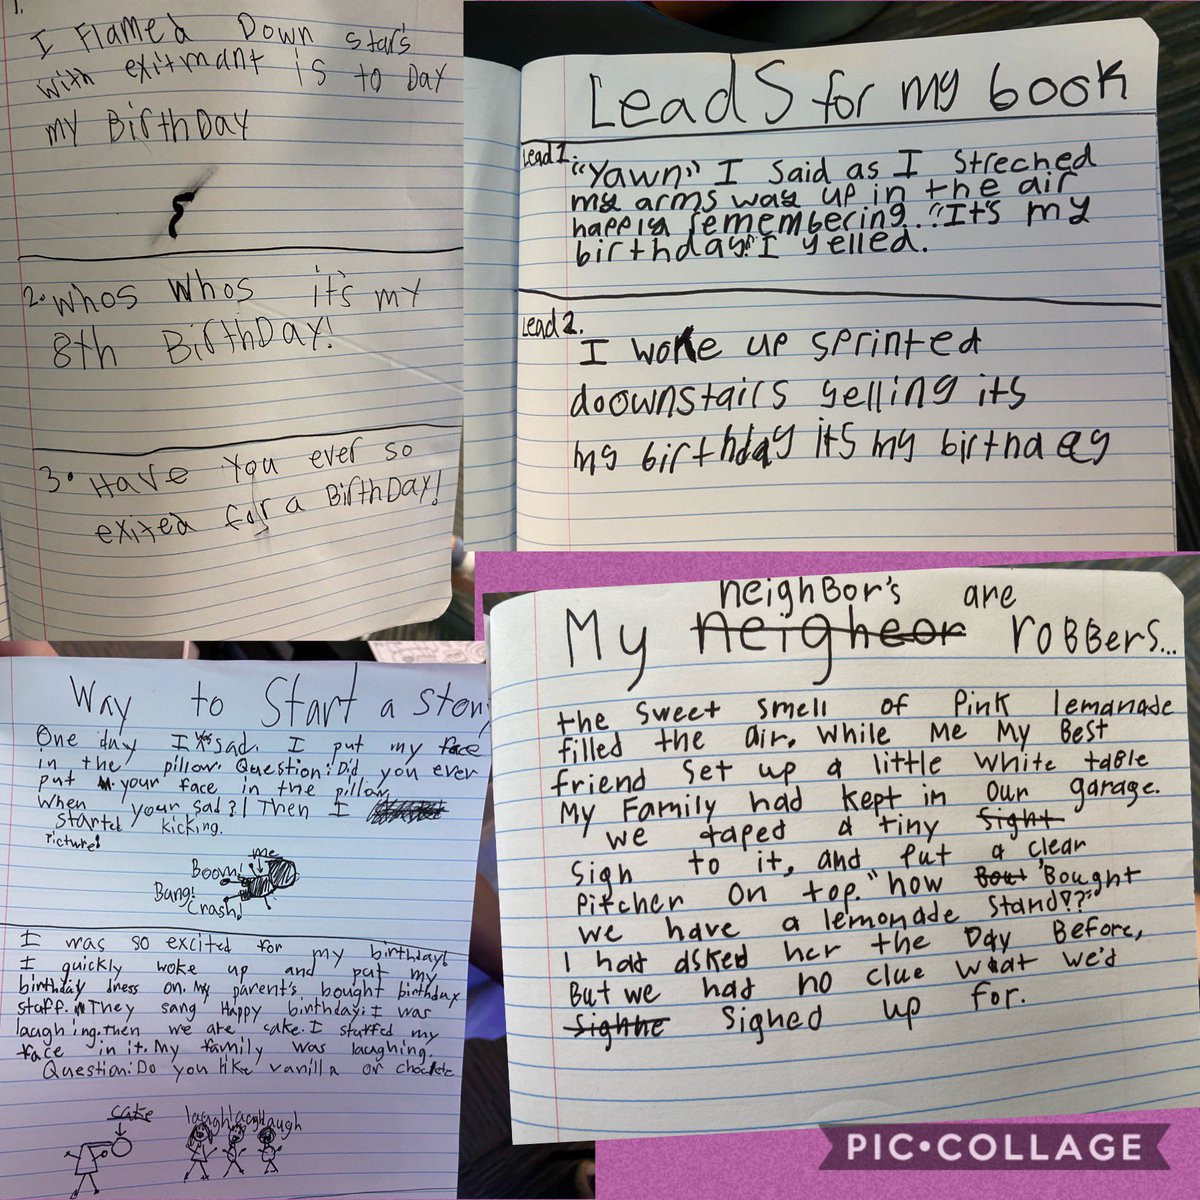 1.
I Flamed Down stars
with exitmant is to Day
my BirthDay
2. Whos Whos it's my
8th BirthDay!
3. Have you ever so
exited for a BirthDay!
Leads for my book
Lead 1.
"Yawn" I said as I streched
my arms way up in the air
happly remembering... "It's my
birthday" I yelled.
Lead 2.
I woke up sprinted
doownstairs yelling its
my birthday its my birthday
Way to Start a story
One day I was sad. I put my face
in the pillow. Question: Did you ever
put your face in the pillow
when your sad?! Then I
started kicking.
Picture!
me
Boom!
Bang!
Crash!
I was so excited for my birthday!
I quickly woke up and put my
birthday dress on. My parent's bought birthday
stuff. They sang Happy birthday. I was
laughing. Then we are cake. I stuffed my
face in it. My family was laughing.
Question: Do you like vanilla or
cake
laugh laugh laugh
neighBor's are
My neigheor roBBers...
the sweet smell of Pink lemanade
filled the air. While Me My Best
friend set up a little white table
My Family had kept in our garage.
We taped a tiny Sight
sigh to it, and put a clear
Pitcher on top. "how Bout Bought
we have a lemonade stand??"
I had asked her the Day Before,
But we had no clue what we'd
Sighne Signed up for.
PIC•COLLAGE